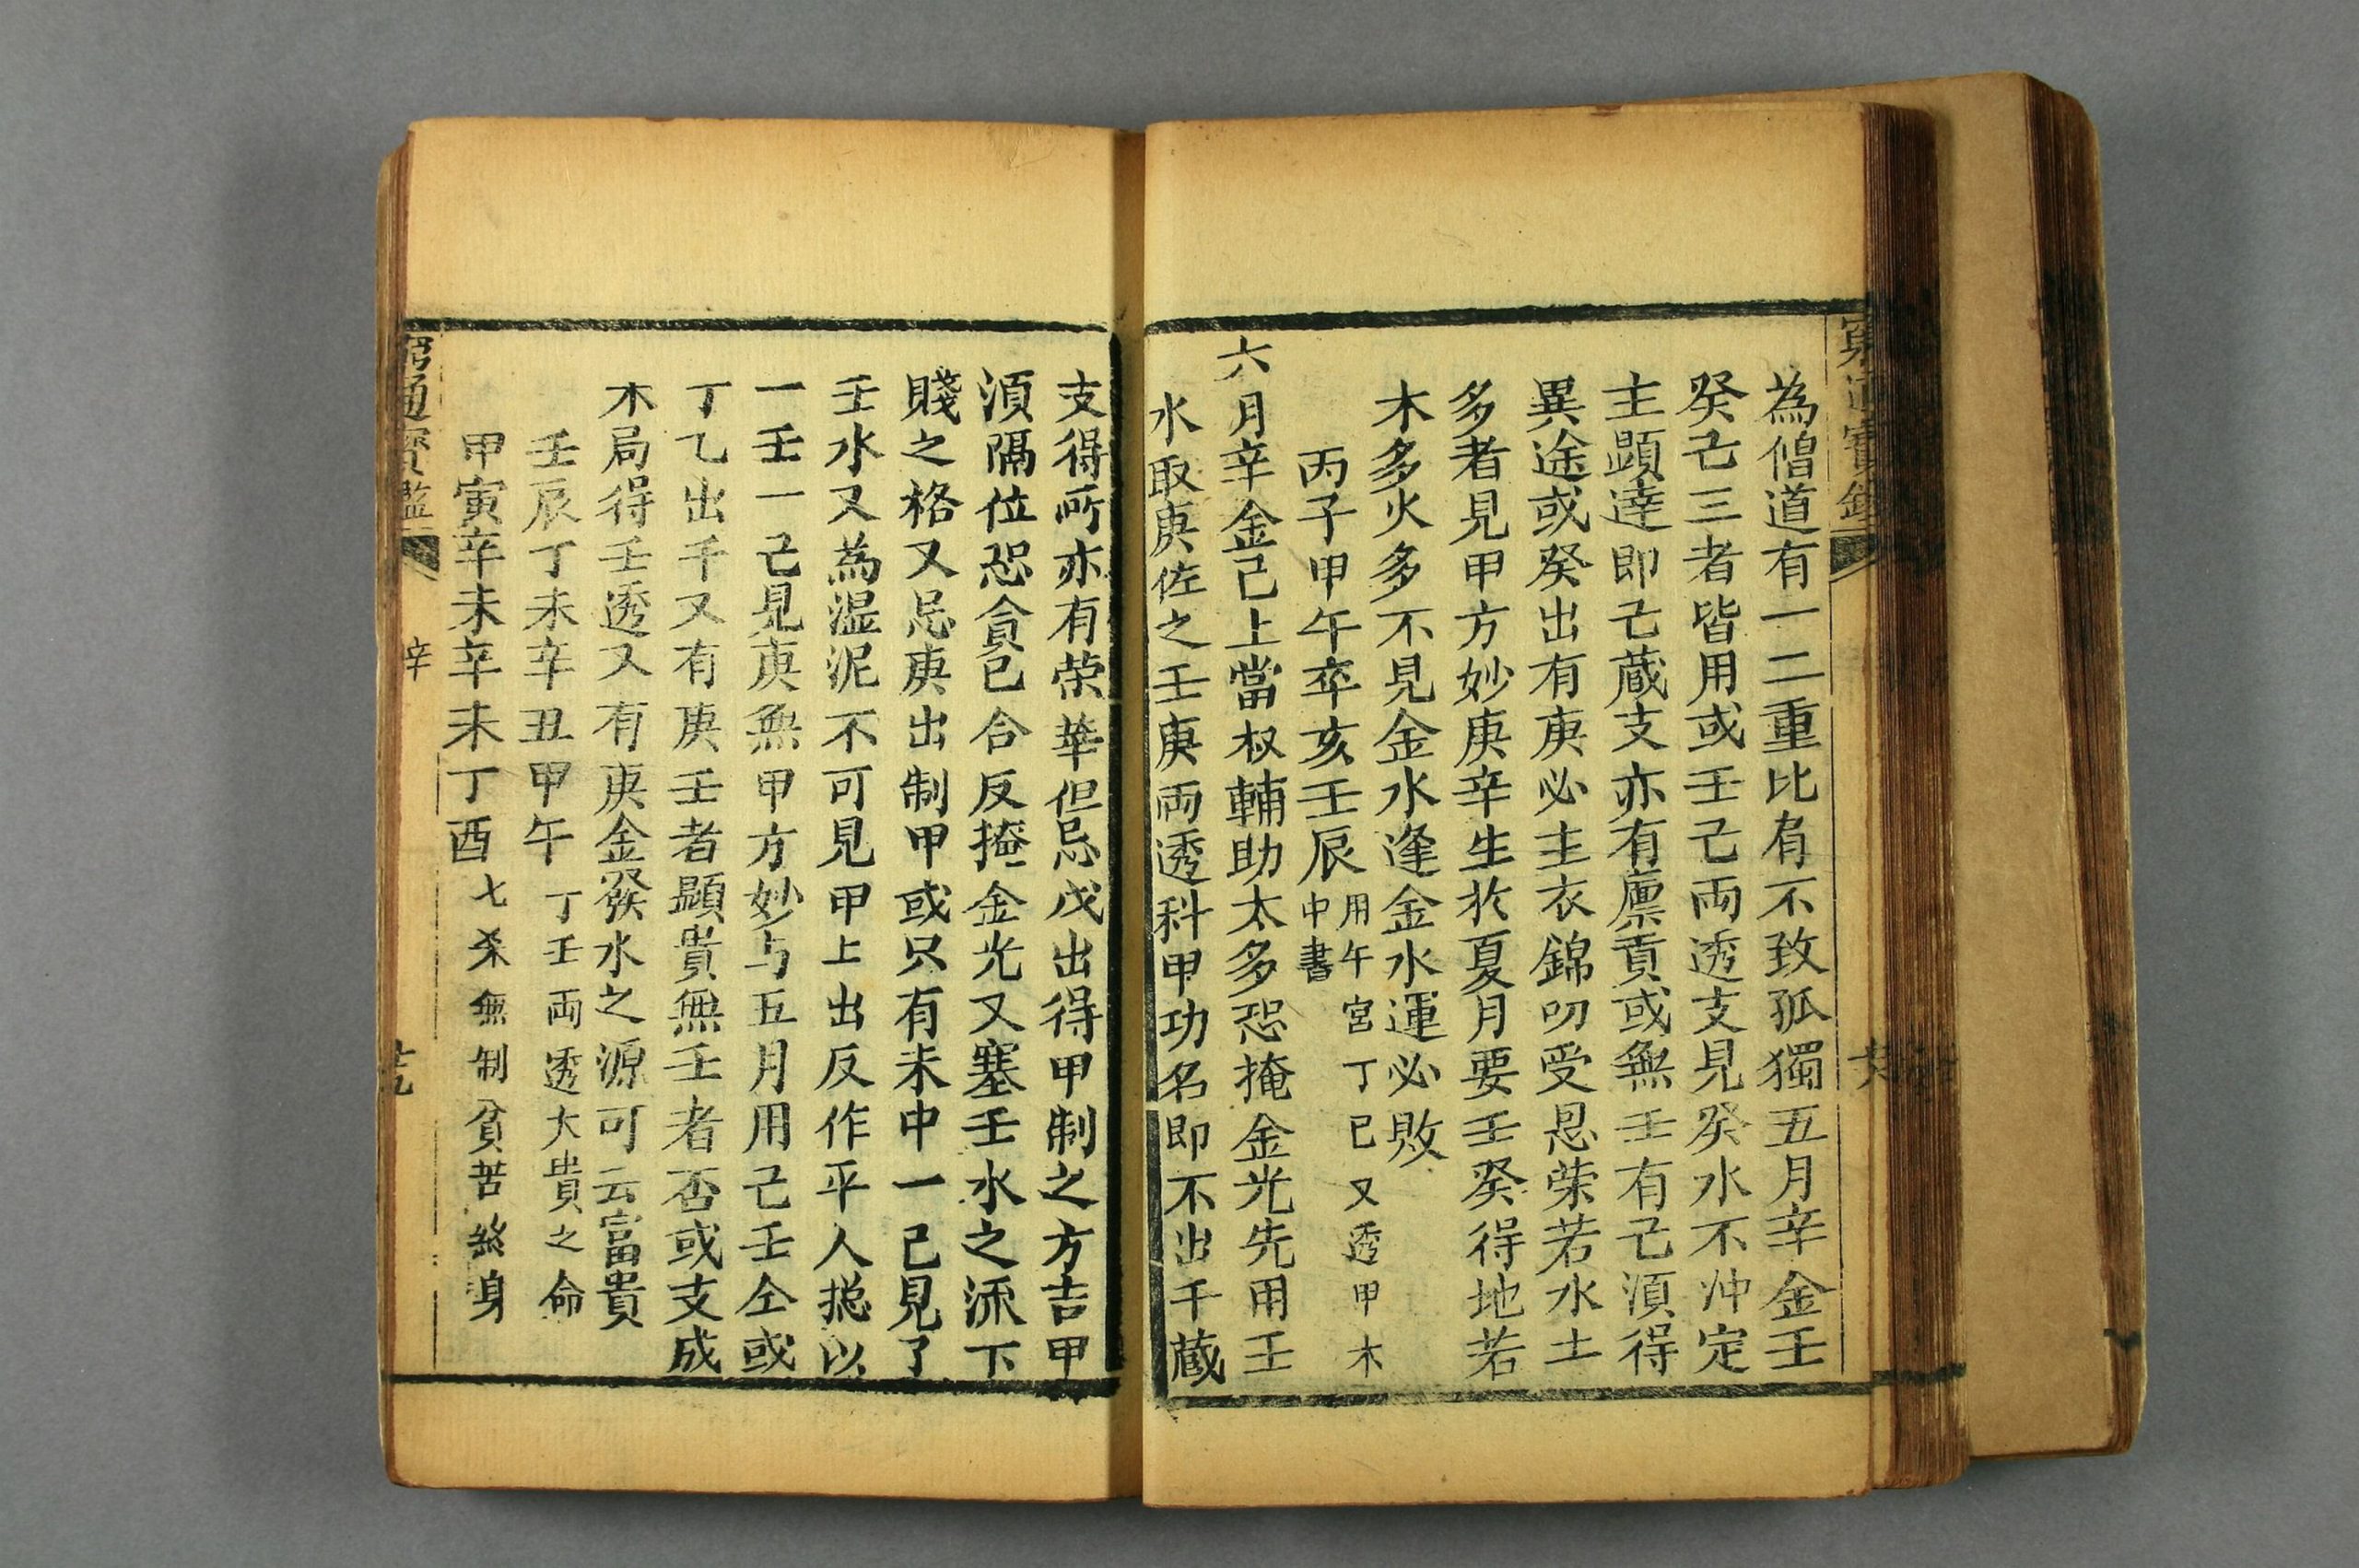 為僧道有一二重比肩不致孤獨五月辛金壬
癸己三者皆用或壬己両透支見癸水不冲定
主顕達即己蔵支亦有廪貢或無壬有己湏得
異途或癸出有庚必主衣錦叨受恩荣若水土
多者見甲方妙庚辛生於夏月要壬癸得地若
木多火多不見金水逢金水運必敗
丙子甲午卒亥壬辰
用午宮丁巳又透甲木
中書
六月辛金己上當权輔助太多恐掩金光先用壬
水取庚佐之壬庚両透科甲功名即不出千蔵
支得所亦有荣華但忌戊出得甲制之方吉甲
湏隔位恐貪已合反掩金光又塞壬水之源下
賤之格又忌庚出制甲或只有未中一己見了
壬水又為湿泥不可見甲上出反作平人揔以
一壬一己見庚無甲方妙与五月用己壬仝或
丁乙出千又有庚壬者顕貴無壬者否或支成
木局得壬透又有庚金發水之源可云富貴
壬辰丁未辛丑甲午
丁壬両透大貴之命
甲寅辛未辛未丁酉
七杀無制貧苦煞身
窮通寳鑑
辛